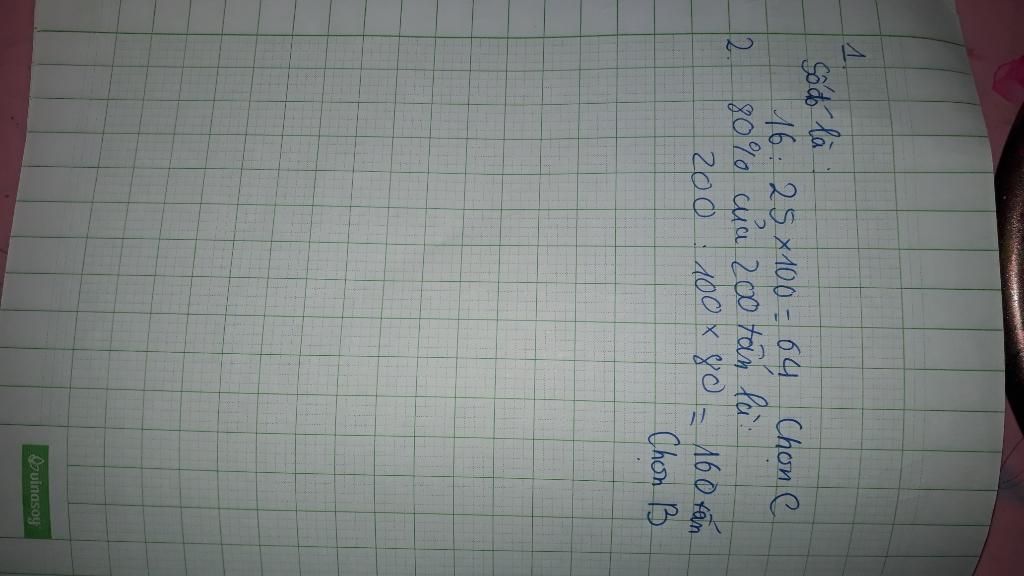 1.
Số đó là:
16 : 25 × 100 = 64 Chọn C
2. 80% của 200 tấn là:
200 : 100 × 80 = 160 tấn
Chọn B
vinasoy